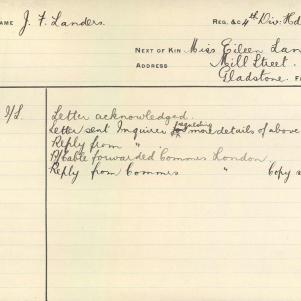 NAME J. F. Landers. REG. &C 4th Div: Hd
NEXT OF KIN Miss Eileen Lan
ADDRESS Mill Street.
Gladstone.
Letter acknowledged.
Letter sent Inquirer requesting more details of above
Reply from "
P/Cable forwarded Commrs London
Reply from Commrs " Copy s